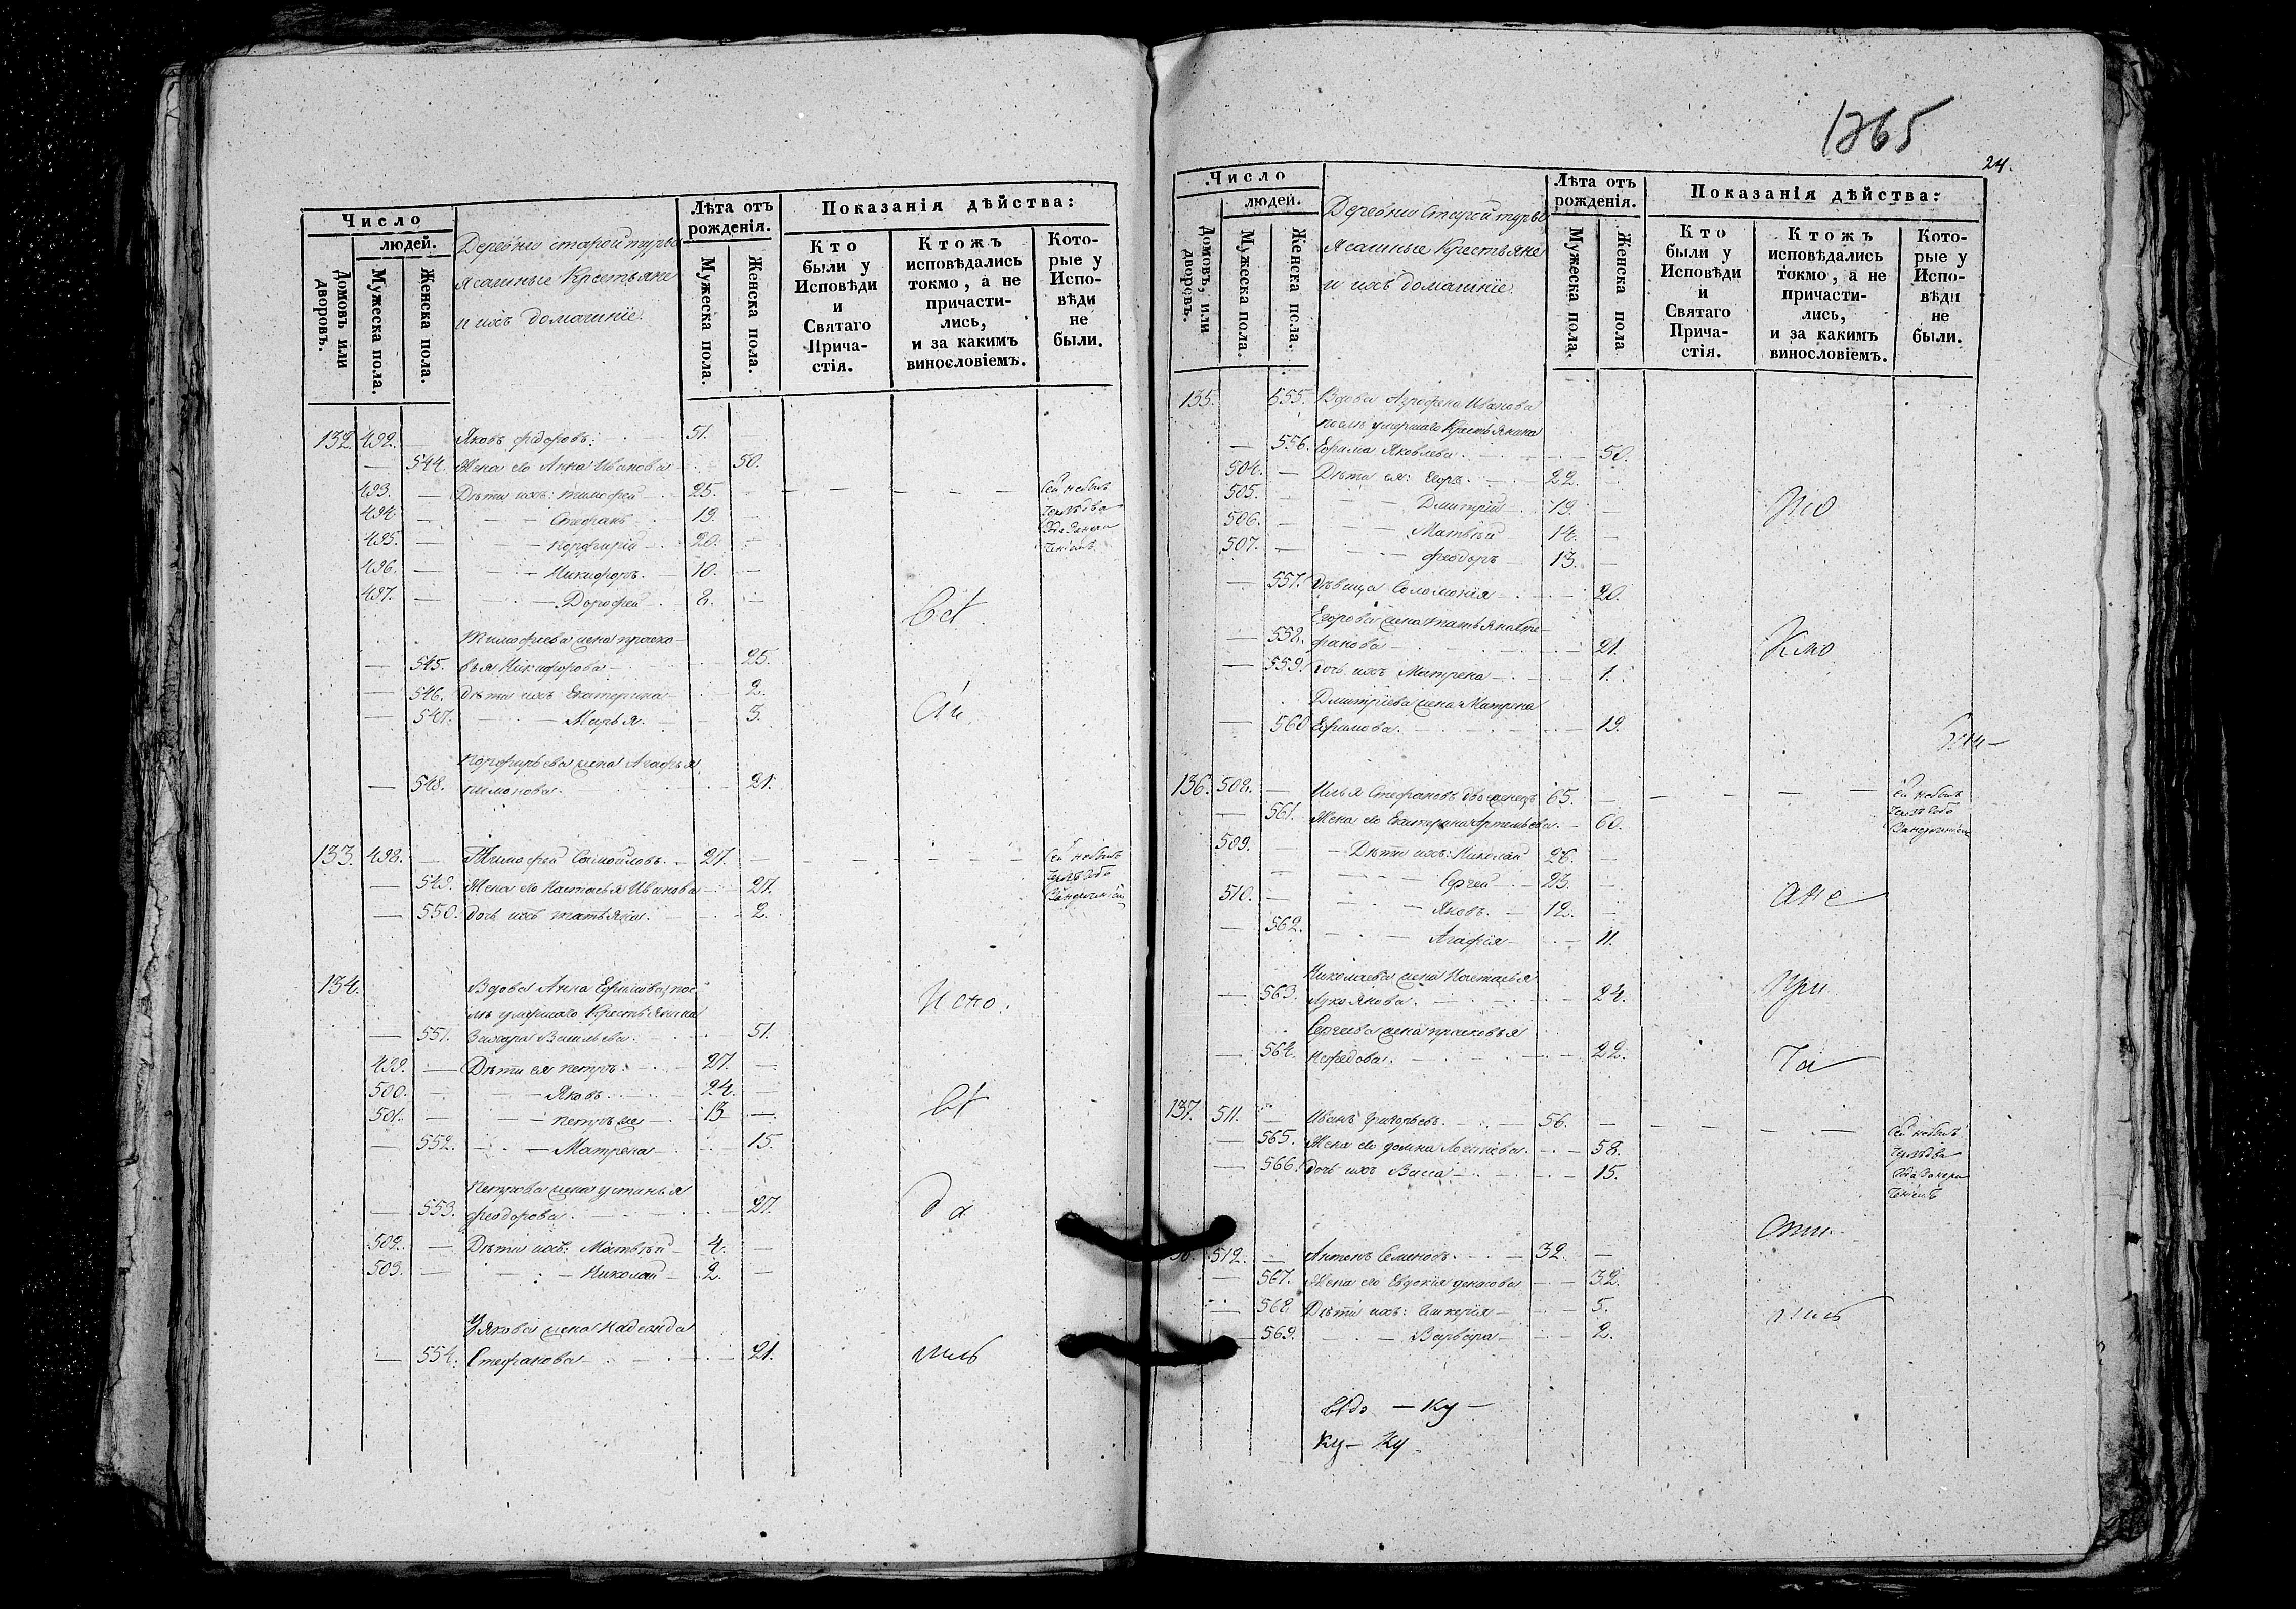 Число
людей.
Домовъ или дворовъ.
Мужеска пола.
Женска пола.
Деревни старой туры
ясашные Крестьяне
и ихъ домашніе.
Лѣта отъ рожденія.
Мужеска пола.
Женска пола.
Показанія дѣйства:
Кто были у Исповѣди и Святаго Прича-стія.
Ктожъ исповѣдались токмо, а не причасти-лись, и за какимъ винословіемъ.
Кото-рые у Испо-вѣди не были.
132. 492. — Яковъ федоровъ. 51.
— 544. Жена его Анна Иванова 50.
493. — Дѣти ихъ: тимофей 25. — Сей небылъ
494. — Стефанъ 19.
495. — порфирій 20. —
496. — Никифоръ. 10. —
497. — Дорофей 8. —
Всѣ
Тимофеева жена праско-
— 545. вья Никифорова 25.
— 546. дѣти ихъ Екатерина 2.
— 547. — Марья. 3.
порфирьева жена Агафья
— 548. 21.
133. 498. — Тимофей Самойловъ. 27. — Сей небылъ
— 549. Жена его Настасья Иванова 27.
— 550. дочь ихъ татьяна. 2.
134. Вдова Анна Ефимова, пос-
лѣ умершаго Крестьянина
Испо.
— 551. Захара Васильева. 51.
499. — Дѣти ея петръ. 27. —
500. — Яковъ 24.
501. — петръ же 13 —
вѣ
— 552. — Матрена 15.
Петрова жена устинья
— 553. феодорова. 27.
да
502. — Дѣти ихъ: Матвѣй 4. —
503. — Николай 2. —
Якова жена Надежда
— 554. Стефанова 21.
лись
1365
24.
Число
людей.
Домовъ, или дворовъ.
Мужеска пола.
Женска пола.
Деревни Старой туры
Ясашные Крестьяне
и ихъ домашніе.
Лѣта отъ рожденія.
Мужеска пола.
Женска пола
Показанія дѣйства:
Кто были у Исповѣди и Святаго Прича-стія.
Ктожъ исповѣдались токмо, а не причасти-лись, и за какимъ винословіемъ.
Кото-рые у Испо-вѣди не были.
135. 555. Вдова Агрофена Иванова
послѣ умершаго Крестьянина
— 556. Ефима Яковлева. 50.
504. — Дѣти ея: Егоръ. 22. —
505. — Дмитрій 19. —
506. — Матвѣй 14. —
507. — феодоръ 13. —
— 557. дѣвица Соломонія 20.
Егорова жена татьяна Сте-
— 558. фанова 21.
— 559. дочь ихъ Матрена 1.
Дмитріева жена Матрена
— 560 Ефимова. 19.
136. 508. — Илья Стефановъ двоеженецъ 65. — Сей небылъ
— 561. Жена его Екатерина Артемьева. 60.
509. — Дѣти ихъ: Николай 26. —
— Сергей 23. —
510. — Яковъ. 12. —
ане
— 562. Агафія 11.
Николаева жена Настасья
— 563. Лукоянова. 24.
при
Сергеева жена прасковья
— 564. Нефедова. 22.
ча
137. 511. — Иванъ Григорьевъ. 56. — Сей небылъ
— 565. Жена его домна Логинова. 58.
— 566. дочь ихъ Васса 15.
512. — Антонъ Семеновъ. 32. —
— 567. Жена его Евдокія 32.
— 568 Дѣти ихъ: Гликерія 5.
— 569. — Варвара 2.
лись
— Ку —
Ку — Ку